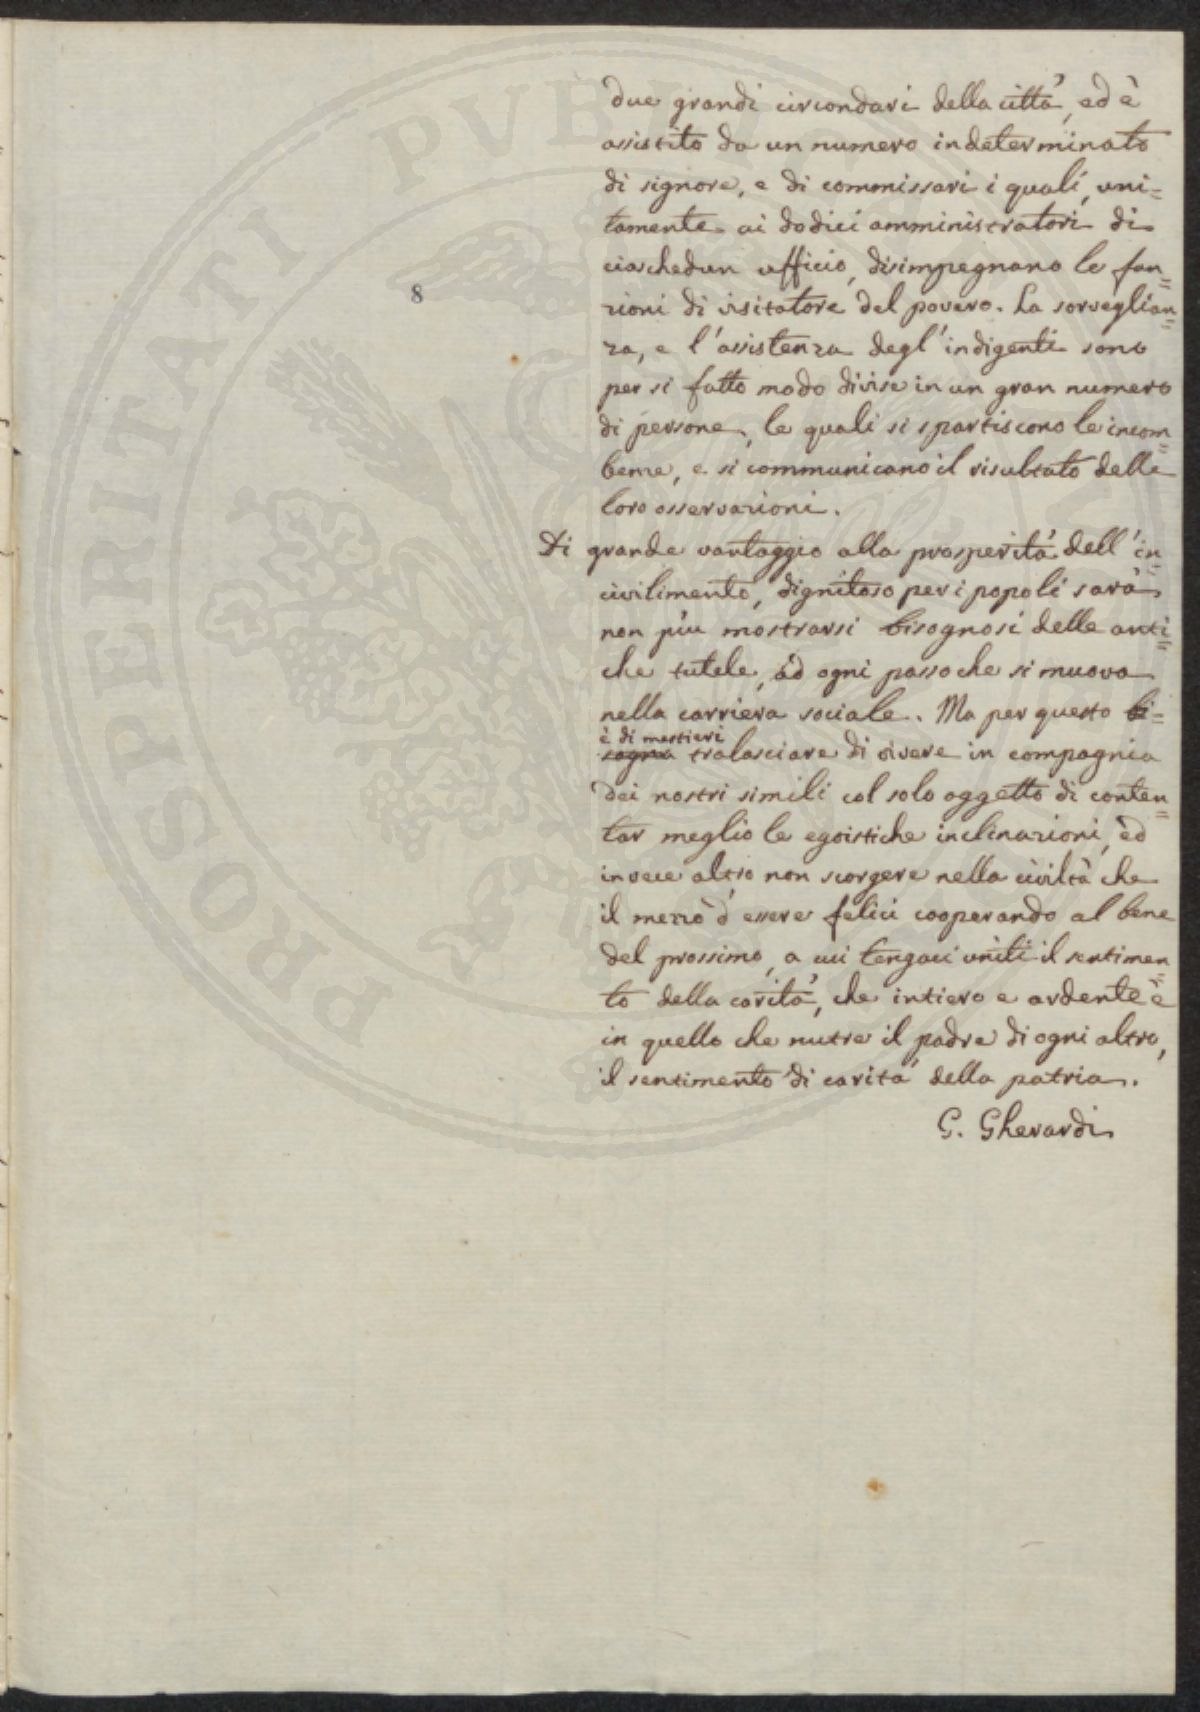 due grandi circondari della città, ed è
assistito da un numero indeterminato
di signore, e di commissari i quali, uni=
tamente ai dodici amministratori di
ciaschedun ufficio, disimpegnano le fun=
zioni di visitatore del povero. La sorveglian=
za, e l'assistenza degl'indigenti sono
per si fatto modo divise in un gran numero
di persone, le quali si spartiscono le incom=
benze, e si communicano il risultato delle
loro osservazioni.
8
Di grande vantaggio alla prosperità dell'in=
civilimento, dignitoso per i popoli sarà
non più mostrarsi bisognosi delle anti=
che tutele, ad ogni passo che si muova
nella carriera sociale. Ma per questo bi=
è di mestieri
sogna tralasciare di vivere in compagnia
dei nostri simili col solo oggetto di conten=
tar meglio le egoistiche inclinazioni, ed
invece altro non scorgere nella civiltà che
il mezzo d'essere felici cooperando al bene
del prossimo, a cui tengaci uniti il sentimen=
to della carità, che intiero e ardente è
in quello che nutre il padre di ogni altro,
il sentimento di carità della patria.
G. Gherardi
PROSPERITATI PVBLICAE